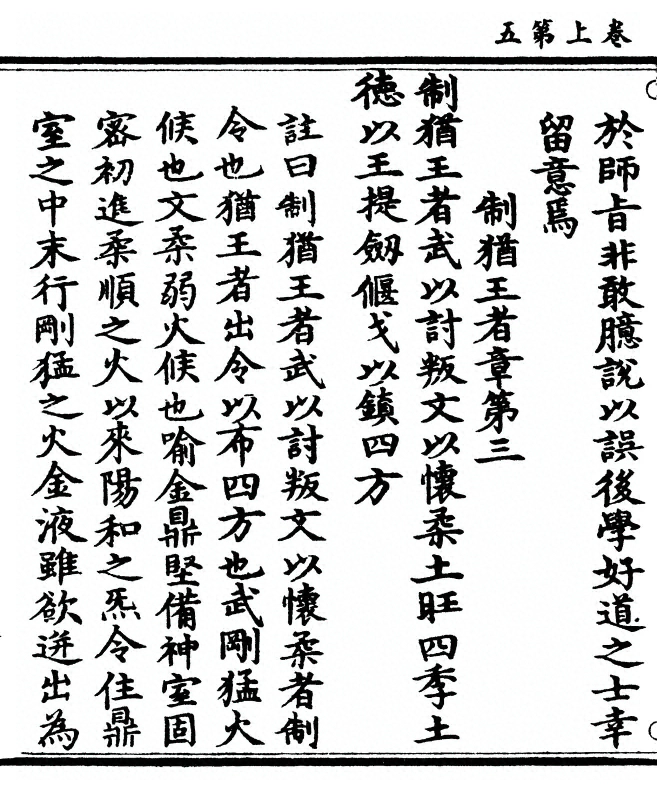 卷上第五
於師旨非敢臆說以誤後學好道之士幸
留意焉
制猶王者章第三
制猶王者武以討叛文以懷柔土旺四季土
德以王提劔偃戈以鎮四方
註曰制猶王者武以討叛文以懷柔者制
令也猶王者出令以布四方也武剛猛火
候也文柔弱火候也喻金鼎堅備神室固
密初進柔順之火以來陽和之炁令住鼎
室之中末行剛猛之火金液雖欲迸出為